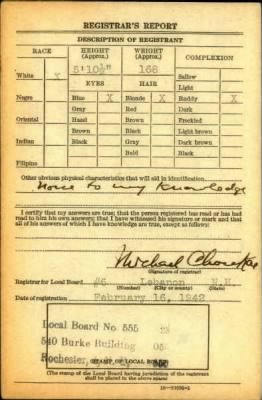 REGISTRAR'S REPORT
DESCRIPTION OF REGISTRANT
RACE HEIGHT (Approx.) WEIGHT (Approx.) COMPLEXION
5' 10½" 168
White X EYES HAIR Sallow
Light
Negro Blue X Blonde X Ruddy X
Gray Red Dark
Oriental Hazel Brown Freckled
Brown Black Light brown
Indian Black Gray Dark brown
Bald Black
Filipino
Other obvious physical characteristics that will aid in identification
None to my knowledge
I certify that my answers are true; that the person registered has read or has had
read to him his own answers; that I have witnessed his signature or mark and that
all of his answers of which I have knowledge are true, except as follows:
Michael
(Signature of registrar)
Registrar for Local Board #6 Lebanon N.H.
(Number) (City or county) (State)
Date of registration February 16, 1942
Local Board No. 555
540 Burke Building
Rochester,
(STAMP OF LOCAL BOARD)
(The stamp of the Local Board having jurisdiction of the registrant
shall be placed in the above space.)